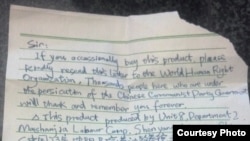 Sir:
If you occassionally buy this product, please
kindly resend this letter to the World Human Right
Organization. Thousands people here who are under
the persicution of the Chinese Communist Party Government
will thank and remember you forever.
This product produced by Unit 8, Department 2
Masanjia Labour Camp, Shenyang
Courtesy Photo